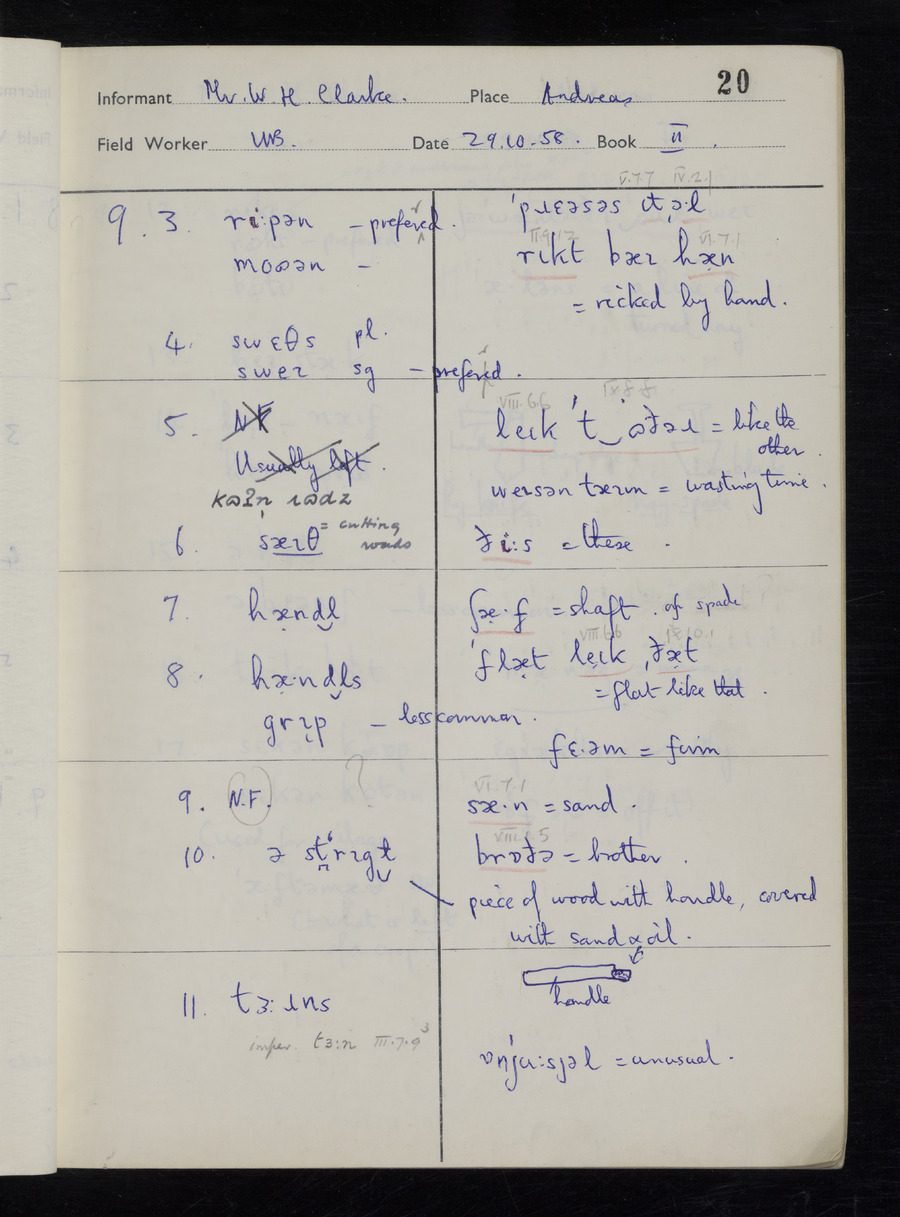 20
Informant Mr. W. H. Clarke. Place Andreas
Field Worker WB. Date 29.10.58. Book II.
9. 3. ri:pən – prefered.
moʊən –
4. swɛθs pl.
sweɪ sg – prefered.
5. N.F.
Usually left.
kʊʔn̩ ɹʊdz
= cutting
roads
6. sæɪθ
7. hændl̩
8. hæ·ndl̩s
gɹɪp – less common.
9. N.F. ?
10. ə stɹɪgl̩
11. tɜ:ɹns
imper. tɜ:n III.7.9³
V.7.7 IV.2.1
II.9.12 VI.7.1
rɪkt bæɪ hæn
= ricked by hand.
VIII.6.6 IX.8.8
leɪk ˈt‿ʊðəɹ = like the
other.
weɪsən tæɪm = wasting time.
ði:s = these.
ʃæ·f = shaft. of spade
VIII.6.6 IX.10.1
ˈflæt leɪk ˌðæt
= flat like that.
fɛ·əm = firm
VI.7.1
sæ·n = sand.
brɒðə = brother.
piece of wood with handle, covered
with sand & oil.
handle
ɒnˈju:sjəl = unusual.